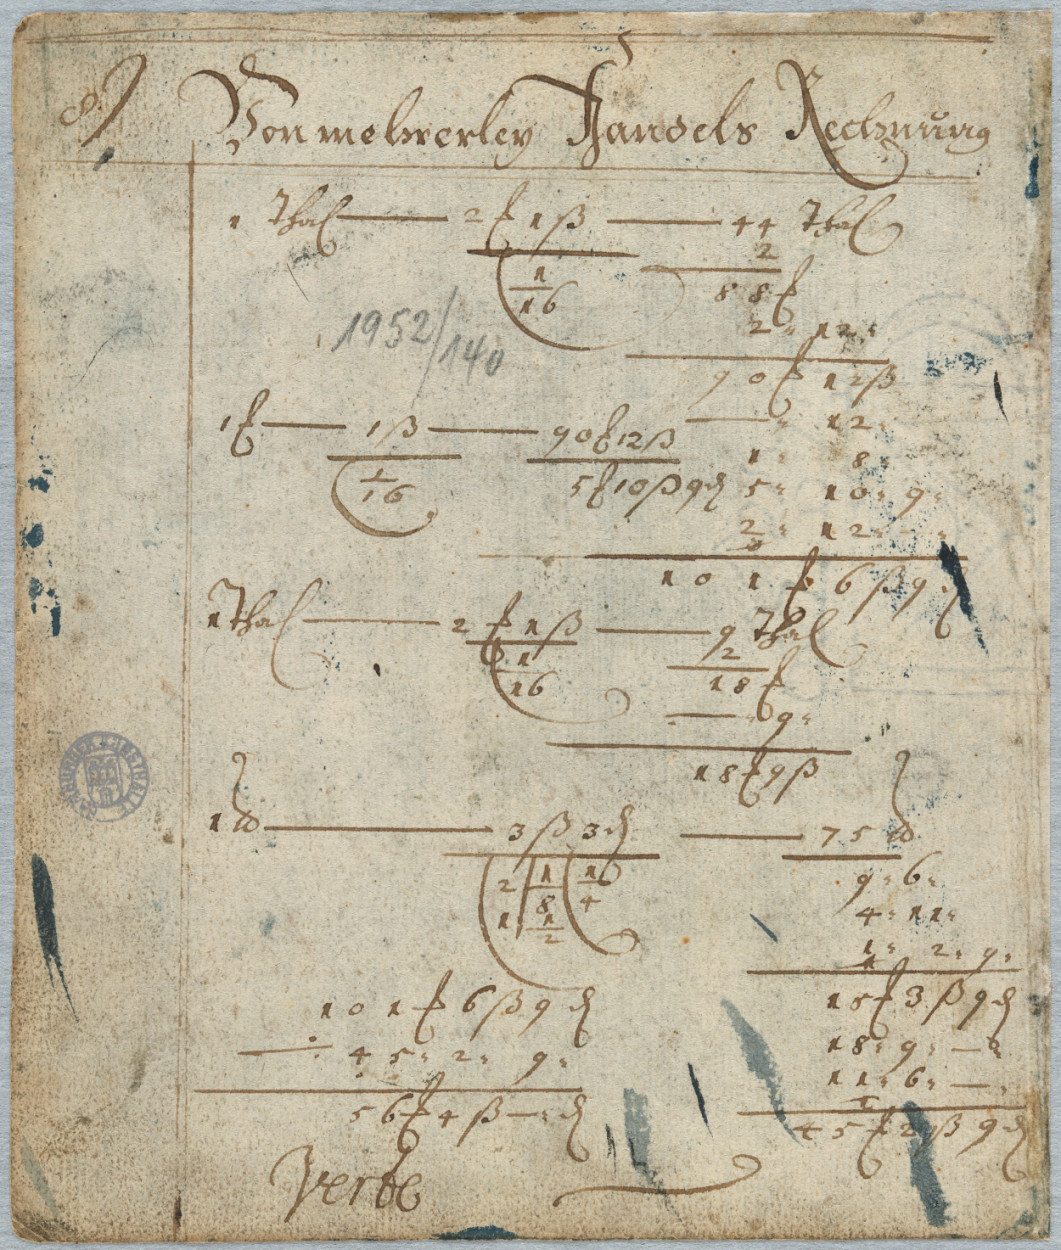 8.
Von mehrerley Handels Rechnung
1 Thal — 2 f 1 ß — 44 Thal
2
1/16 88 f
2 " 12 "
1952/140
90 f 12 ß
— " 12 "
1 f — 1 ß — 90 f 12 ß
1 " 8 "
1/16 5 f 10 ß 9 d 5 " 10 " 9 "
2 " 12 " — "
101 f 6 ß 9 d
1 Thal — 2 f 1 ß — 9 Thal
1/16 2
18 f
— " 9 "
18 f 9 ß
1 — 3 ß 3 d — 75
2 1/8 1/4 9 " 6 "
1 1/2 4 " 11 "
1 " 2 " 9 "
101 f 6 ß 9 d 15 f 3 ß 9 d
÷ 45 " 2 " 9 " 18 " 9 " — "
11 " 6 " — "
56 f 4 ß — " d 45 f 2 ß 9 d